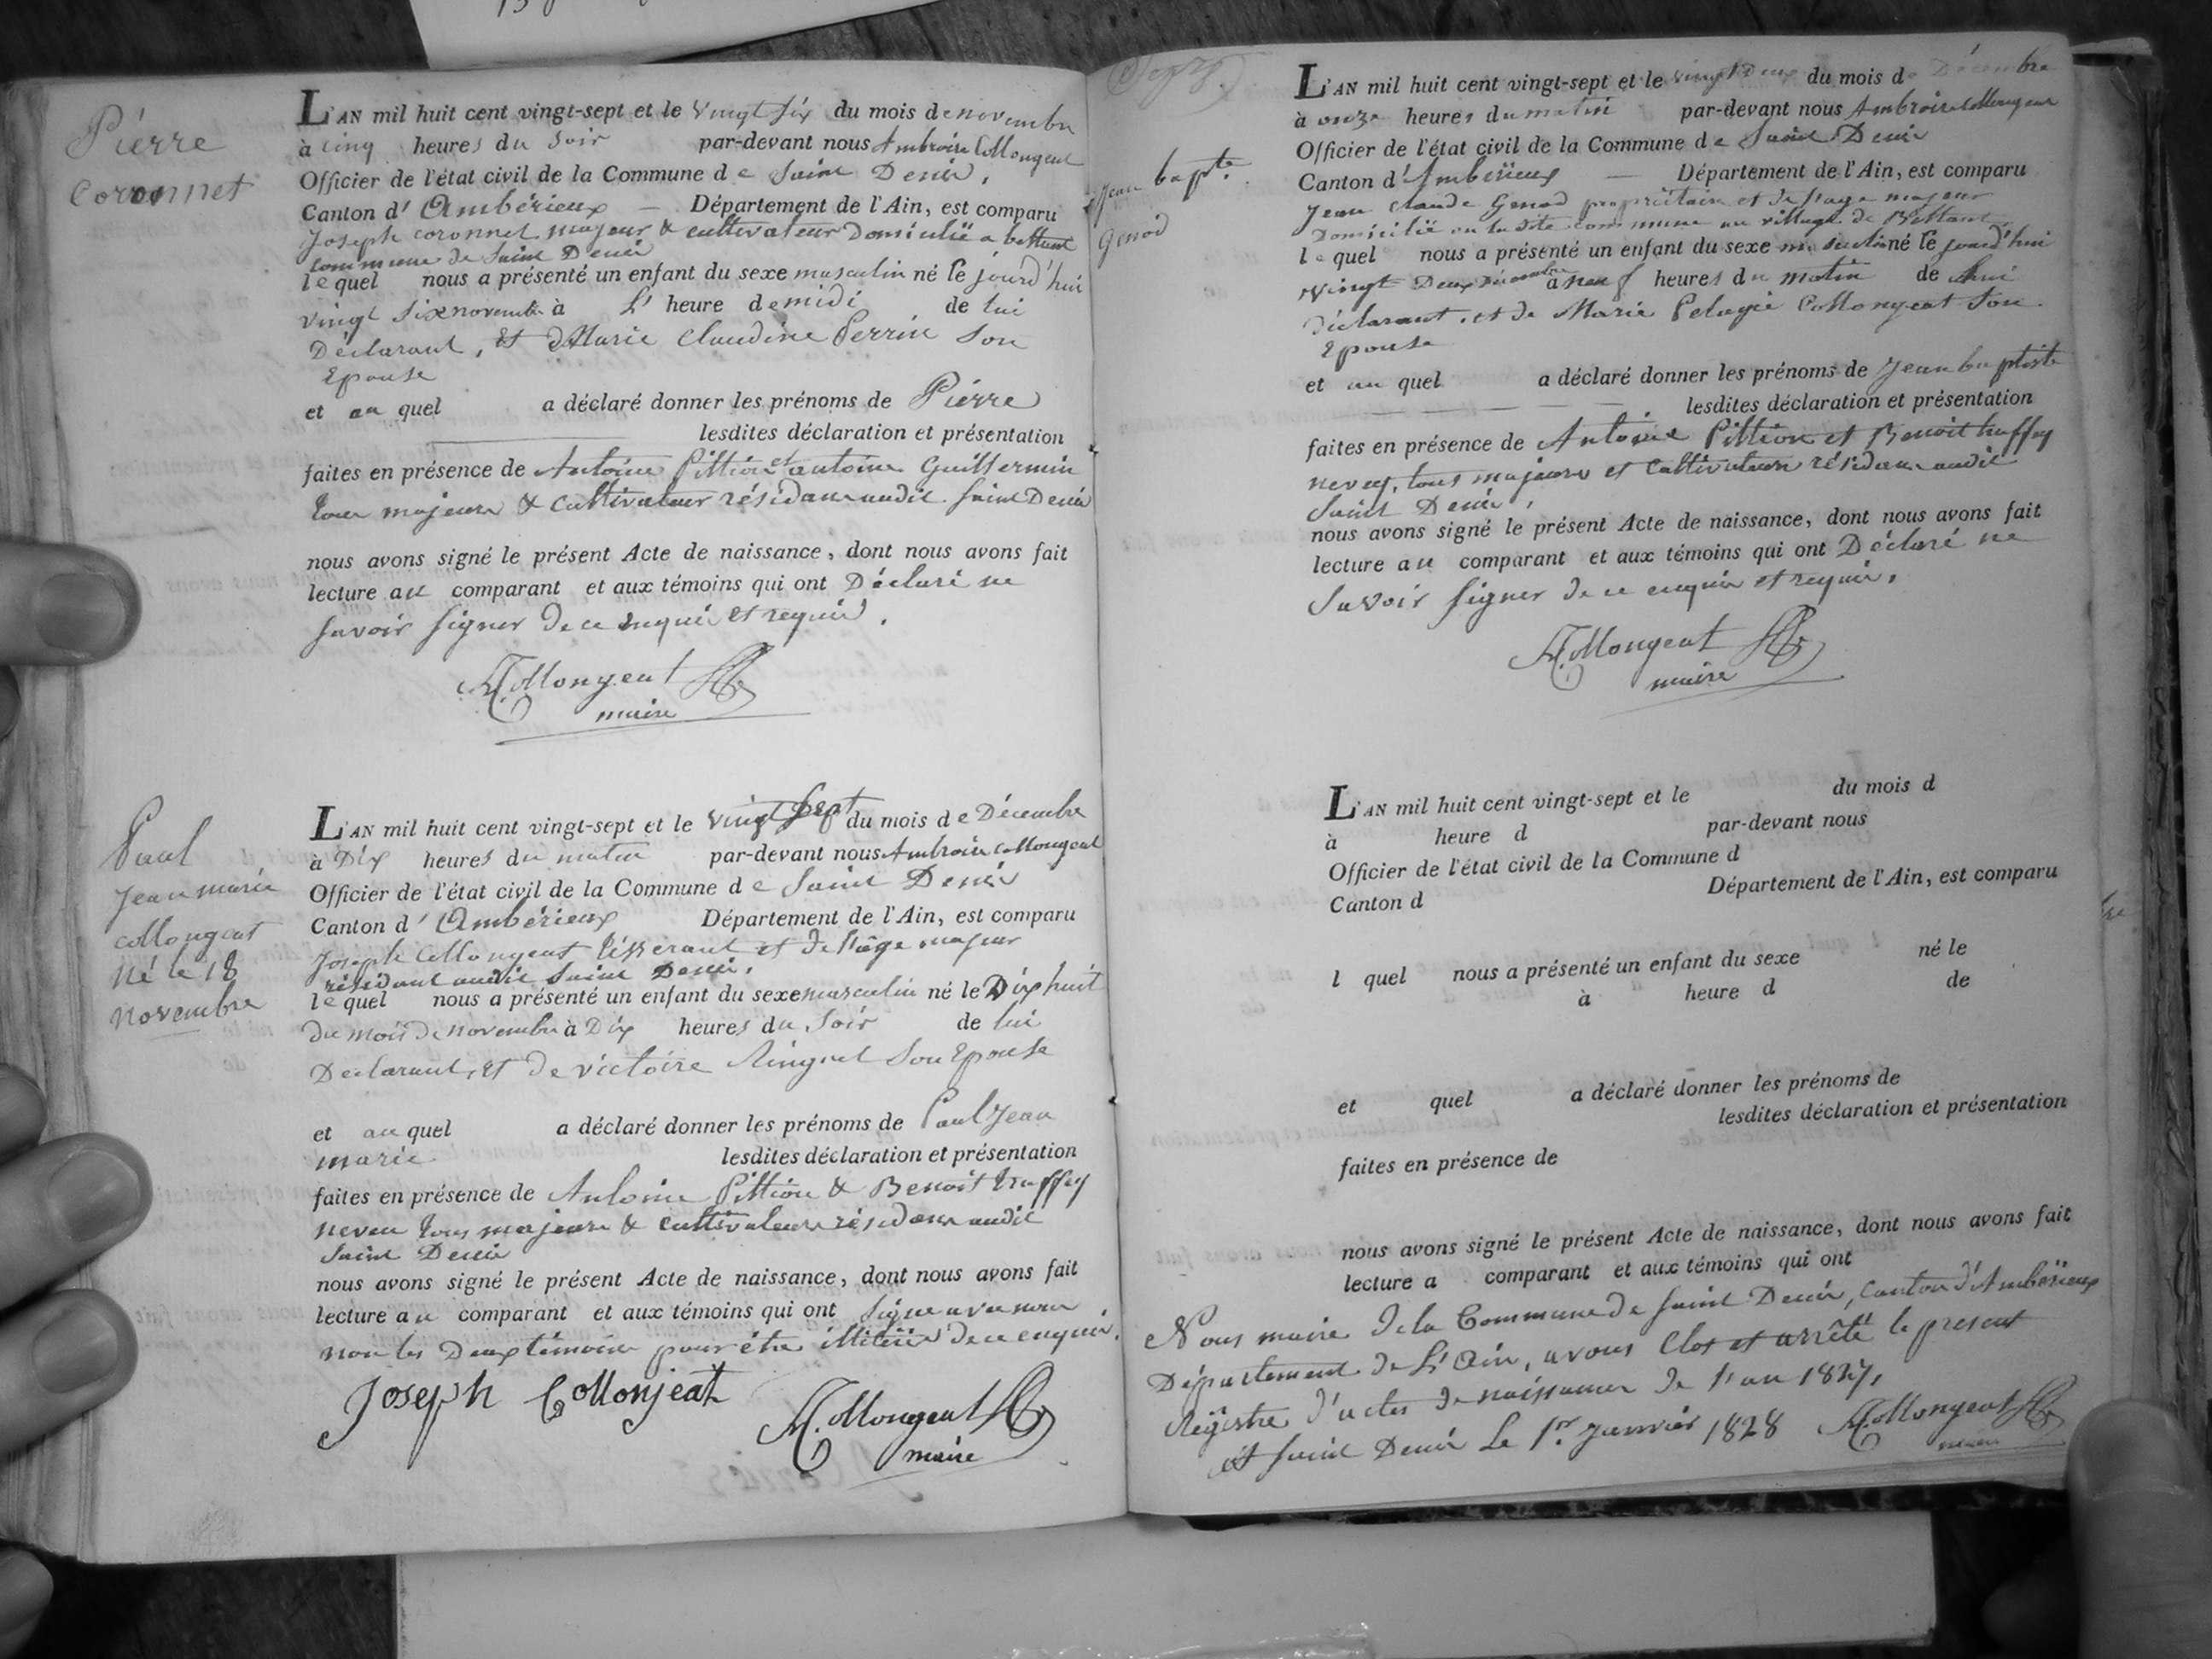 Pierre
Coronnet
L'AN mil huit cent vingt-sept et le vingt six du mois de novembre
à cinq heures du soir par-devant nous Ambroise Collongeat
Officier de l'état civil de la Commune de Saint Denis,
Canton d'Ambérieux — Département de l'Ain, est comparu
Joseph coronnet majeur & cultivateur Domicilié a bettant
commune de Saint Denis
lequel nous a présenté un enfant du sexe masculin né le jourd'hui
vingt six novembre à L' heure de midi de lui
Déclarant, et de Marie Claudine Perrin Son
Epouse
et au quel a déclaré donner les prénoms de Pierre
lesdites déclaration et présentation
faites en présence de Antoine Pittion et antoine Guillermin
tous majeurs & cultivateurs résidans audit Saint Denis
nous avons signé le présent Acte de naissance, dont nous avons fait
lecture au comparant et aux témoins qui ont Déclaré ne
savoir signer de ce enquis et requis.
A. Collongeat
maire
Paul
Jean marie
collongeat
né le 18
novembre
L'AN mil huit cent vingt-sept et le vingt Sept du mois de Décembre
à Dix heures du matin par-devant nous Ambroise Collongeat
Officier de l'état civil de la Commune de Saint Denis
Canton d'Ambérieux Département de l'Ain, est comparu
Joseph Collongeat tisserant et de l'âge majeur
résidant audit Saint Denis,
lequel nous a présenté un enfant du sexe masculin né le Dix huit
du mois de novembre à Dix heures du Soir de lui
Declarant, et de victoire Ringuet Son Epouse
et au quel a déclaré donner les prénoms de Paul Jean
marie lesdites déclaration et présentation
faites en présence de Antoine Pittion & Benoit truffey
neveu tous majeurs & cultivateurs résidans audit
Saint Denis
nous avons signé le présent Acte de naissance, dont nous avons fait
lecture au comparant et aux témoins qui ont Signé avec nous
non les Deux témoins pour être illiterés de ce enquis.
Joseph Collonjeat
A. Collongeat
maire
Jean bapte.
Genod
L'AN mil huit cent vingt-sept et le vingt Deux du mois de Décembre
à onze heures du matin par-devant nous Ambroise Collongeat
Officier de l'état civil de la Commune de Saint Denis
Canton d'Ambérieux — Département de l'Ain, est comparu
Jean Claude Genod propriétaire et de l'age majeur
Domicilié en ladite commune au village de Bettant
lequel nous a présenté un enfant du sexe masculin né le jourd'hui
vingt Deux Décembre à neuf heures du matin de lui
déclarant, et de Marie Pelagie Collongeat Son
Epouse
et au quel a déclaré donner les prénoms de Jean baptiste
lesdites déclaration et présentation
faites en présence de Antoine Pittion et Benoit truffey
neveu, tous majeurs et Cultivateurs résidans audit
Saint Denis,
nous avons signé le présent Acte de naissance, dont nous avons fait
lecture au comparant et aux témoins qui ont Déclaré ne
Savoir signer de ce enquis et requis.
A. Collongeat
maire
L'AN mil huit cent vingt-sept et le du mois d
à heure d par-devant nous
Officier de l'état civil de la Commune d
Canton d Département de l'Ain, est comparu
l quel nous a présenté un enfant du sexe né le
à heure d de
et quel a déclaré donner les prénoms de
lesdites déclaration et présentation
faites en présence de
nous avons signé le présent Acte de naissance, dont nous avons fait
lecture a comparant et aux témoins qui ont
Nous maire de la Commune de Saint Denis, canton d'Ambérieux
Département de L'Ain, avons Clos et arrêté le present
Régistre d'actes de naissances de l'an 1827,
A Saint Denis Le 1er. Janvier 1828 A. Collongeat
maire